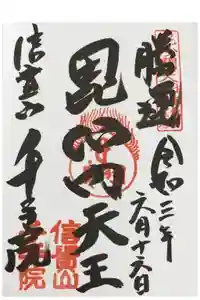 勝運
令和三年
毘沙門天王
信貴山
千手院
信貴山
千手院